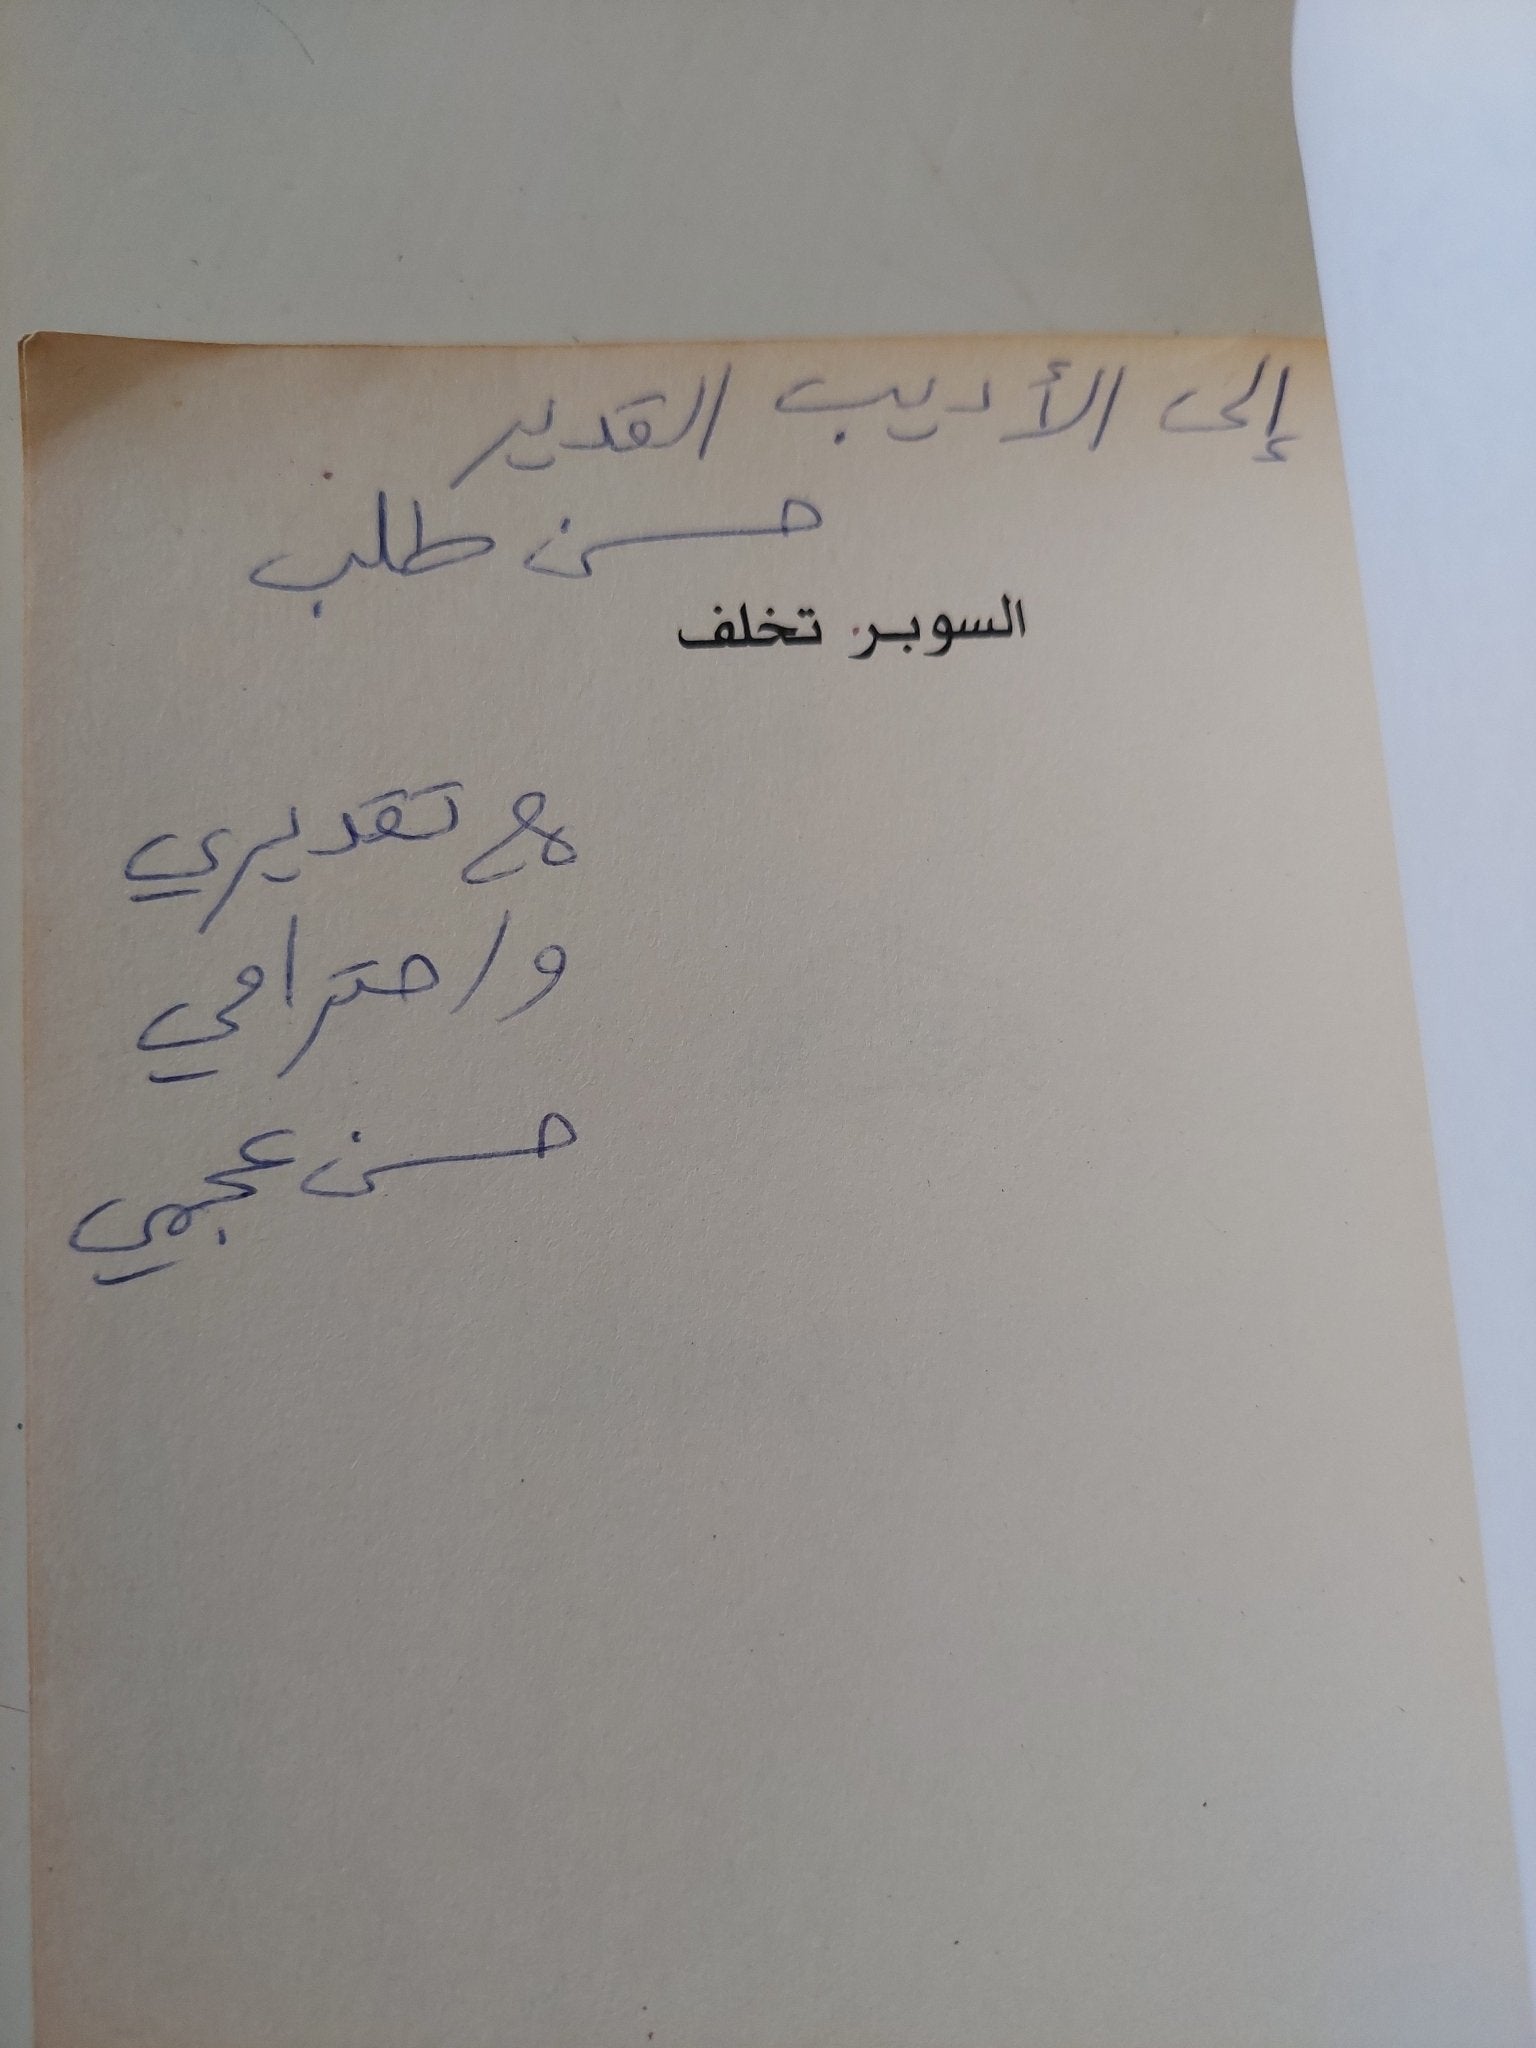 إلى الأديب القدير
حسن طلب
السوبر تخلف
مع تقديري
واحترامي
حسن عجمي